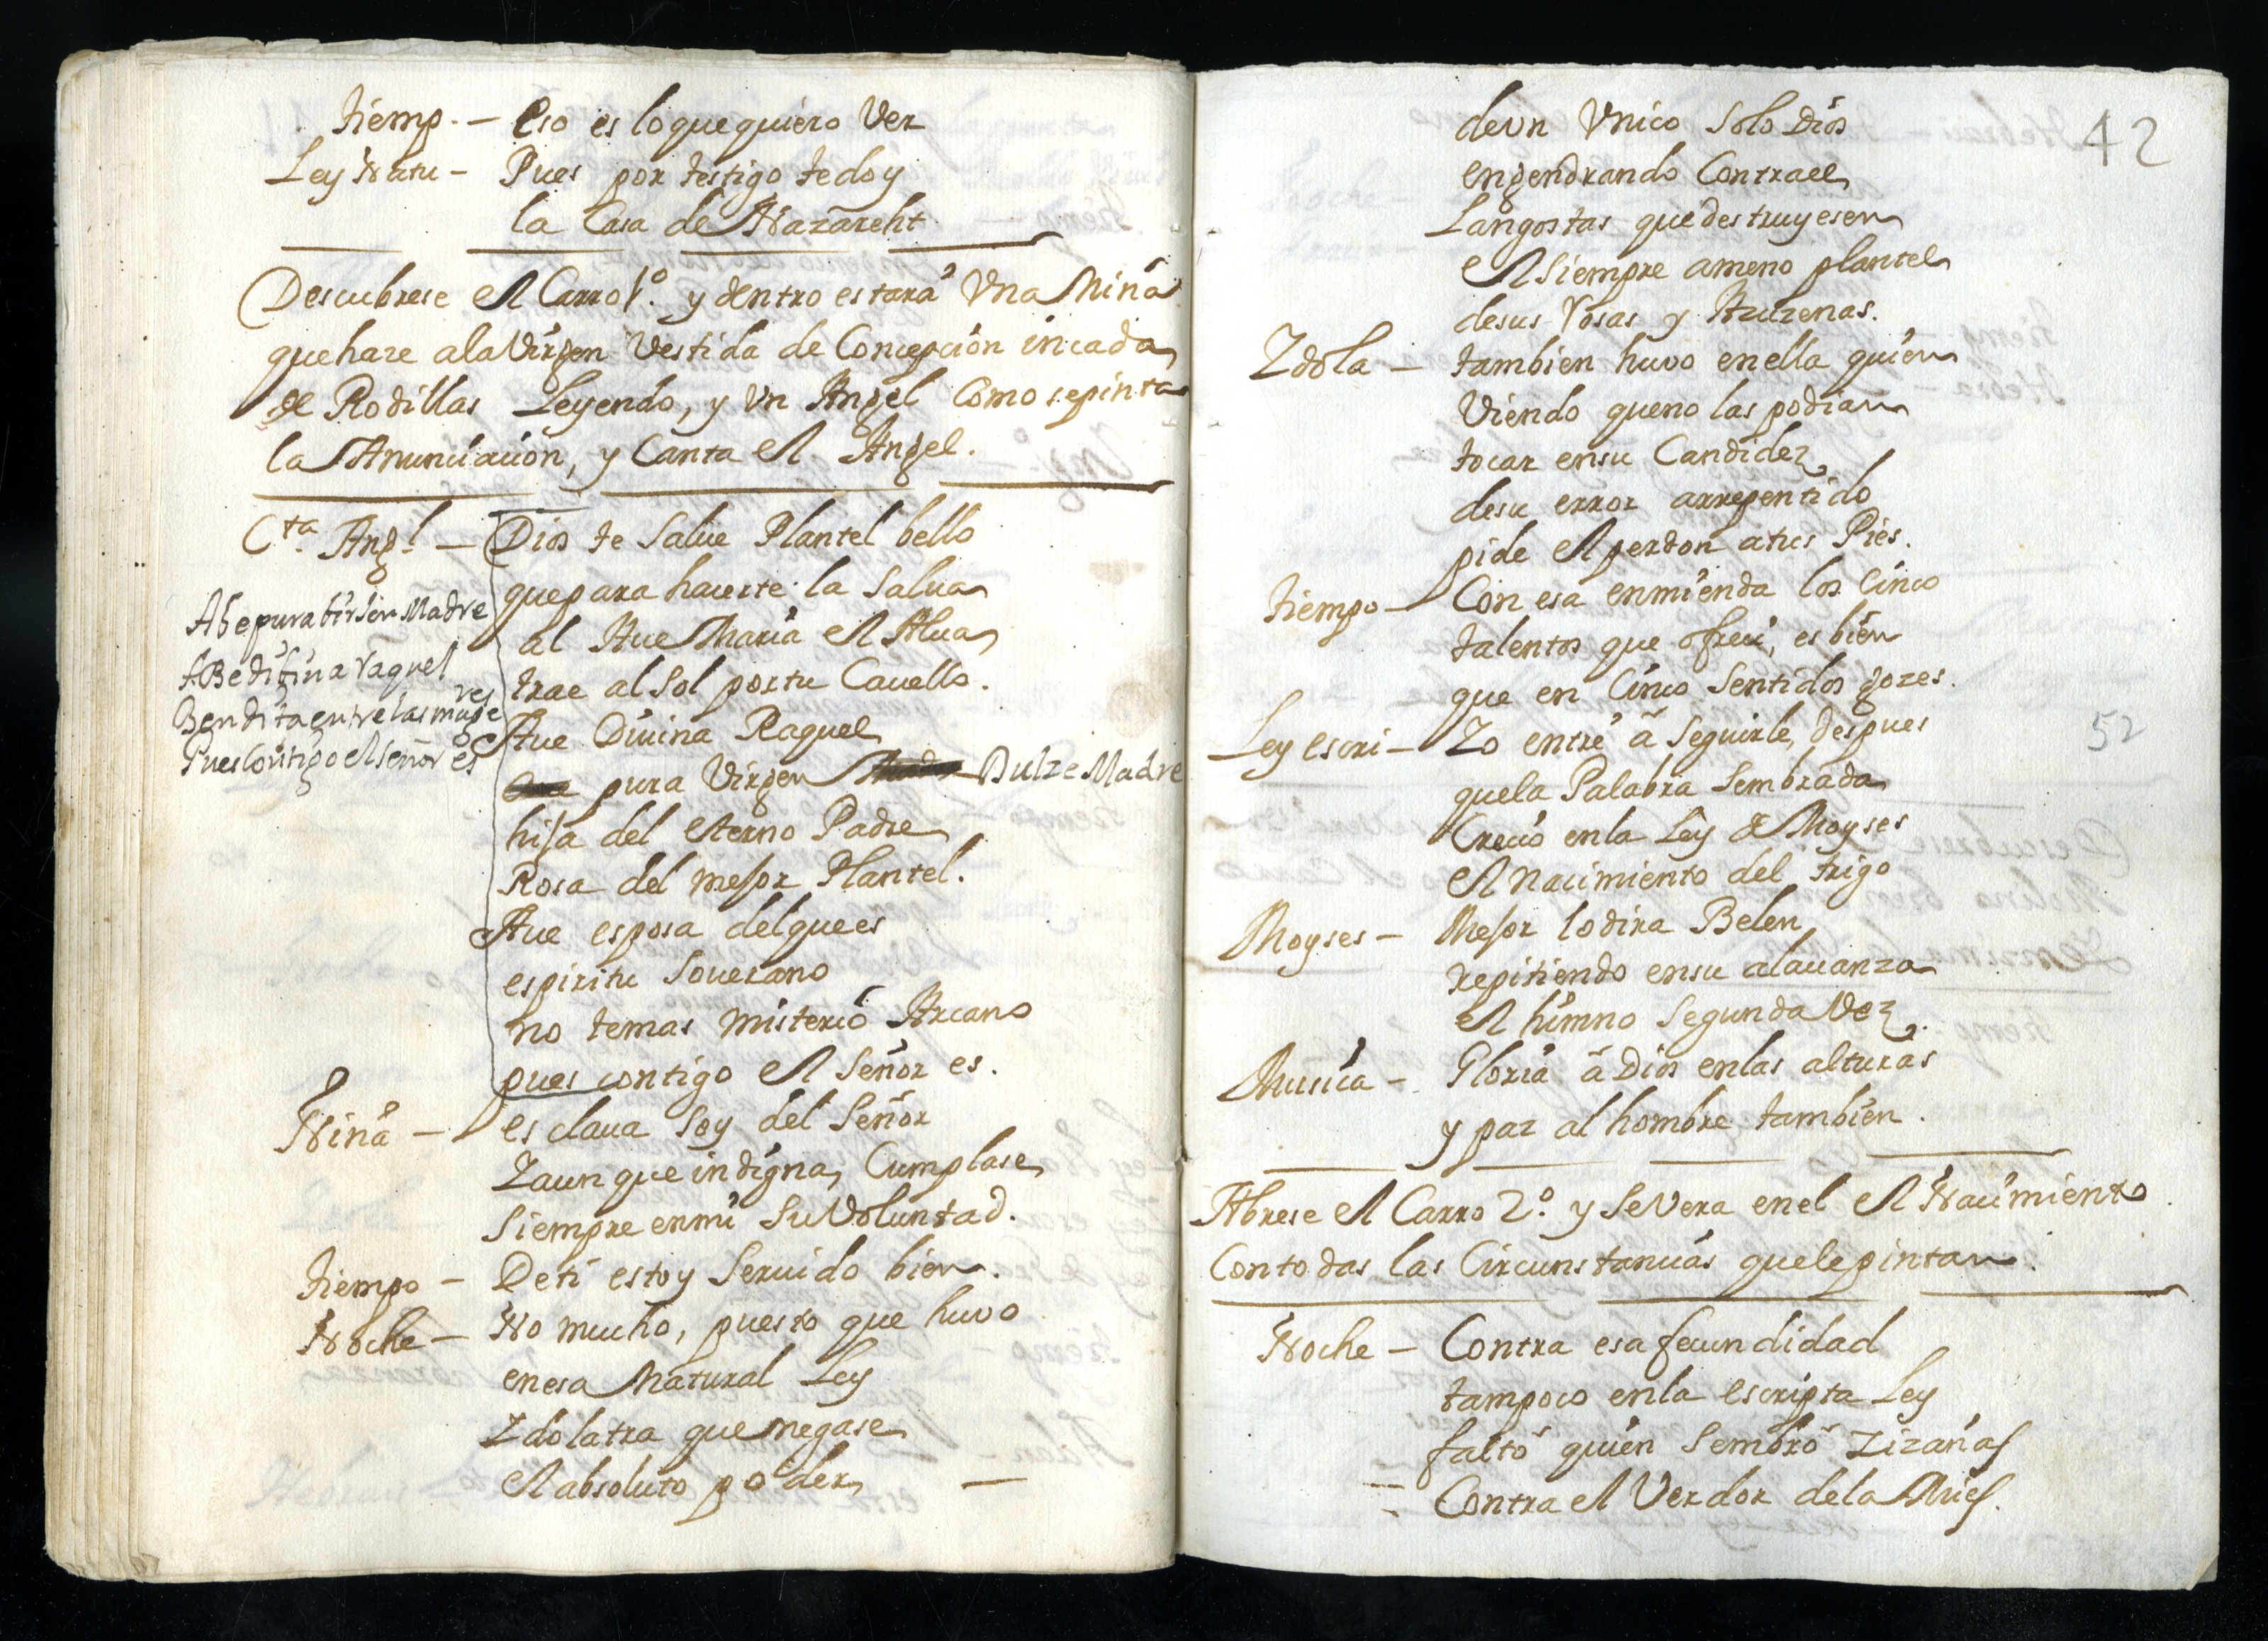 tiemp. — Eso es loquequiero Ver
Ley Natu — Pues por testigo tedoy
la Casa de Nazareht
Descubrese el Carro 1º. y dentro estará Vna Niña
quehaze alaVirgen Vestida de Concepcion incada
de Rodillas Leyendo, y Vn Angel Como sepinta
la Anunciacion, y Canta el Angel.
Cta. Angl. — Dios te Salue Plantel bello
quepara hacerte la Salua
al Aue Maria el Alua
trae al Sol portu Cauello.
Aue Diuina Raquel
pura Virgen Dulze Madre
hija del eterno Padre
Rosa del mejor Plantel.
Aue esposa delquees
espiritu Souerano
no temas misterio Arcano
pues contigo el Señor es.
Abepura birjen Madre
ABedibina raquel
Benditaentrelasmuge
res
Puescontigo elseñor es
Niña — esclaua Soy del Señor
Yaunque indigna, Cumplase
Siempre enmi SuVoluntad.
tiempo — Deti estoy Seruido bien.
Noche — No mucho, puesto que huvo
enesa Natural Ley
Ydolatra que negase
el absoluto poder —
42
deVn Vnico Solo Dios
engendrando Contrael
Langostas quedestruyesen
el Siempre ameno plantel
desus rosas y Azuzenas.
Ydola — tambien huvo enella quien
Viendo queno las podian
tocar ensu Candidez
desu error arrepentido
pide el perdon atus Pies.
tiempo — Con esa enmienda los Cinco
talentos que ofreci, es bien
que en Cinco Sentidos gozes.
Ley escri — Yo entré á Seguirle, despues
quela Palabra Sembrada
Crecio enla Ley de Moyses
el Nacimiento del trigo
52
Moyses — Mejor lodira Belen
repitiendo ensu alauanza
el himno Segunda Vez.
Musica — Gloria á Dios enlas alturas
y paz al hombre tambien.
Abrese el Carro 2º. y SeVera enel el Nacimiento
Contodas las Circunstancias quelepintan.
Noche — Contra esa fecundidad
tampoco enla escripta Ley
faltó quien Sembró Zizañas
Contra el Verdor dela Mies.